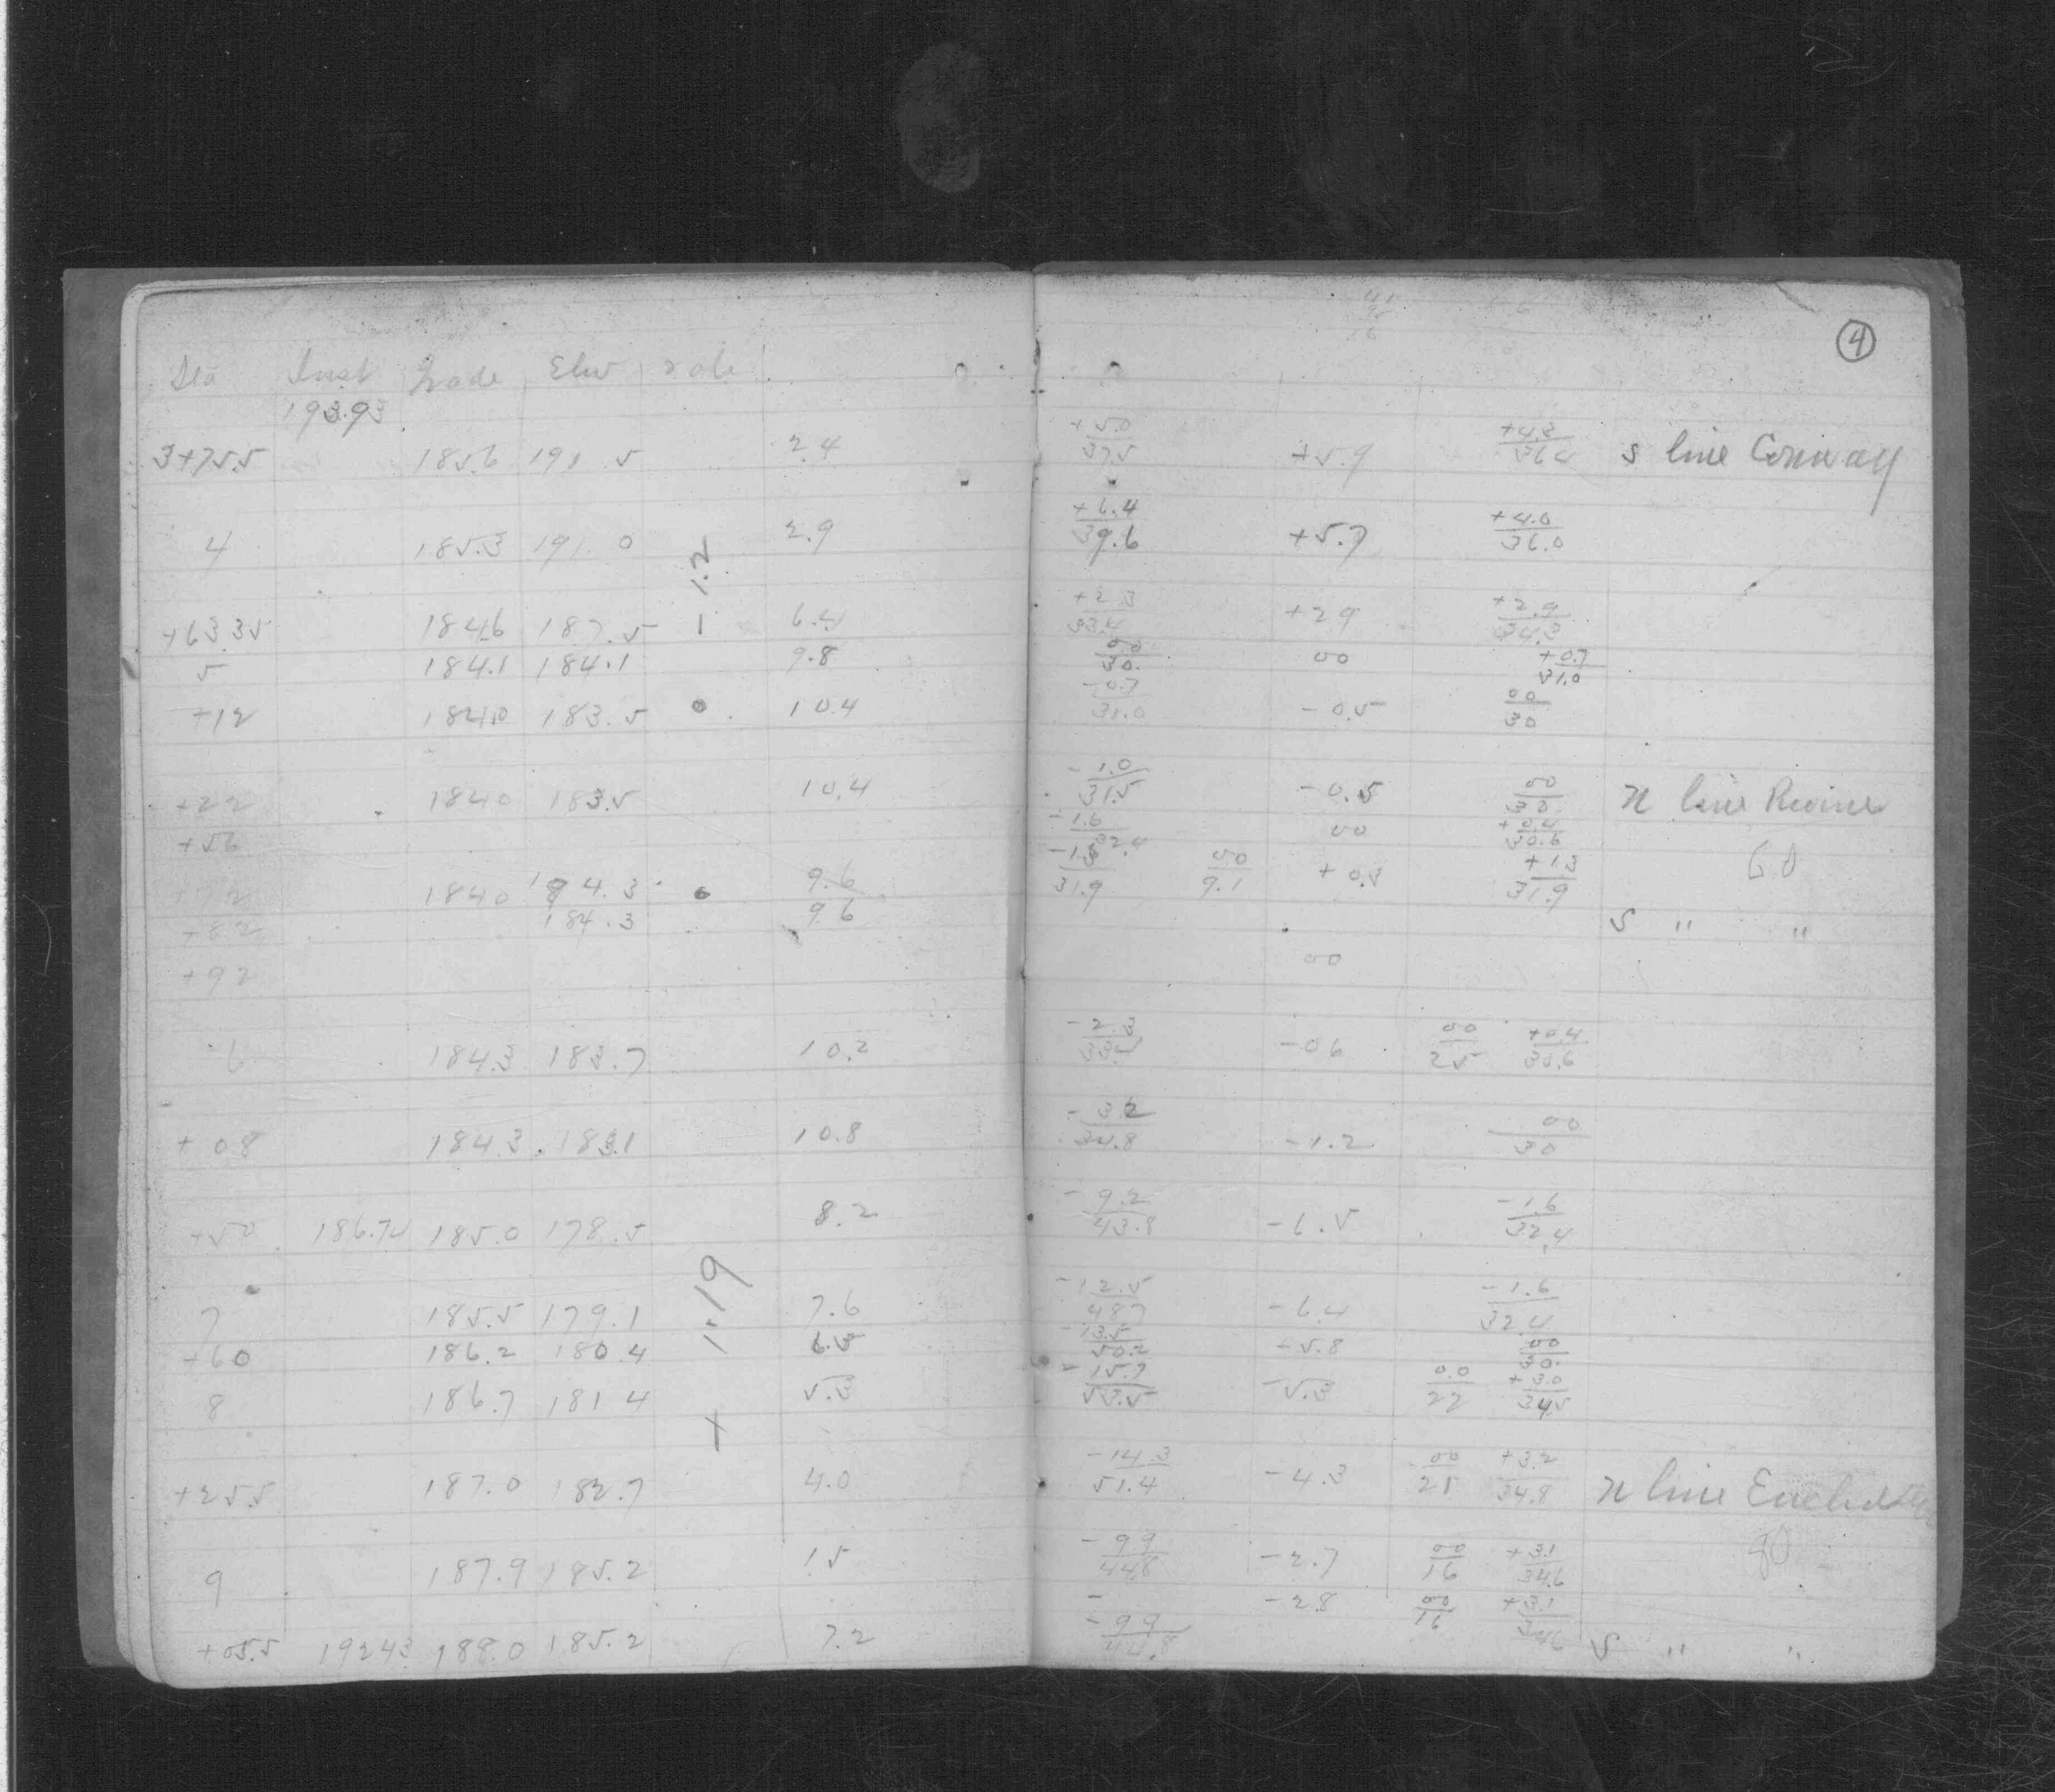 4
Sta Inst Grade Elev rate
193.93
3+75.5 185.6 191.5 2.4 +5.0/37.5 +5.9 +4.3/36.4 S line Conway
4 185.3 191.0 2.9 +6.4/39.6 +5.7 +4.0/36.0
- 1.2
+63.35 184.6 187.5 6.4 +2.3/33.4 +2.9 +2.9/34.3
5 184.1 184.1 9.8 0.0/30. 00 +0.7/31.0
+12 184.0 183.5 0 10.4 -0.7/31.0 -0.5 00/30
+22 184.0 183.5 10.4 -1.0/31.5 -0.5 00/30 N line
+56 -1.6/32.4 00 +0.4/30.6
+72 184.0 184.3 0 9.6 -1.3/31.9 00/9.1 + 0.3 +1.3/31.9 60
+82 184.3 9.6 S " "
+92 00
6 184.3 183.7 10.2 -2.3/33.5 -0.6 00/25 +0.4/30.6
+08 184.3 183.1 10.8 -3.2/34.8 -1.2 00/30
+50 186.74 185.0 178.5 8.2 -9.2/43.8 -6.5 -1.6/32.4
+ 1.19
7 185.5 179.1 7.6 -12.5/48.7 -6.4 -1.6/32.4
+60 186.2 180.4 6.3 -13.5/50.2 -5.8 00/30.
8 186.7 181.4 5.3 -15.7/53.5 -5.3 0.0/22 +3.0/34.5
+25.5 187.0 182.7 4.0 -14.3/51.4 -4.3 00/21 +3.2/34.8 N line Euclid
9 187.9 185.2 1.5 -9.9/44.8 -2.7 00/16 +3.1/34.6 80
+05.5 192.43 188.0 185.2 7.2 -9.9/44.8 -2.8 00/16 +3.1/34.6 S " "